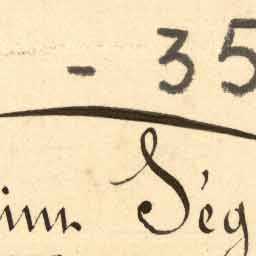 - 35
im. Ség